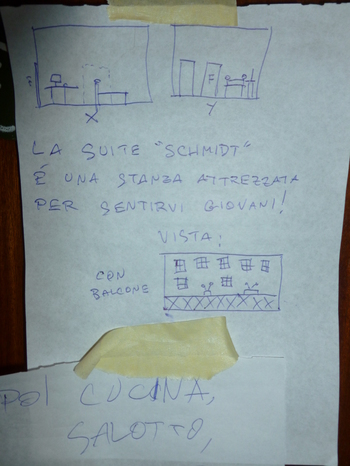 X
Y
LA SUITE "SCHMIDT"
É UNA STANZA ATTREZZATA
PER SENTIRVI GIOVANI!
VISTA:
CON
BALCONE
POI CUCINA,
SALOTTO,